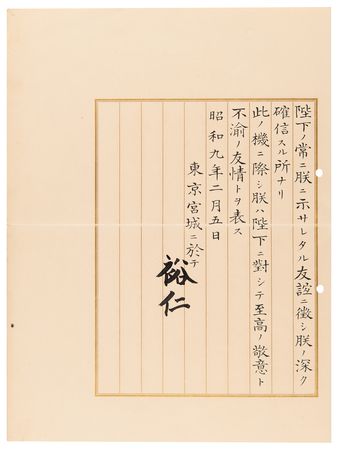 陛下ノ常ニ朕ニ示サレタル友誼ニ徴シ朕ノ深ク
確信スル所ナリ
此ノ機ニ際シ朕ハ陛下ニ對シテ至高ノ敬意ト
不渝ノ友情トヲ表ス
昭和九年二月五日
東京宮城ニ於テ
裕仁